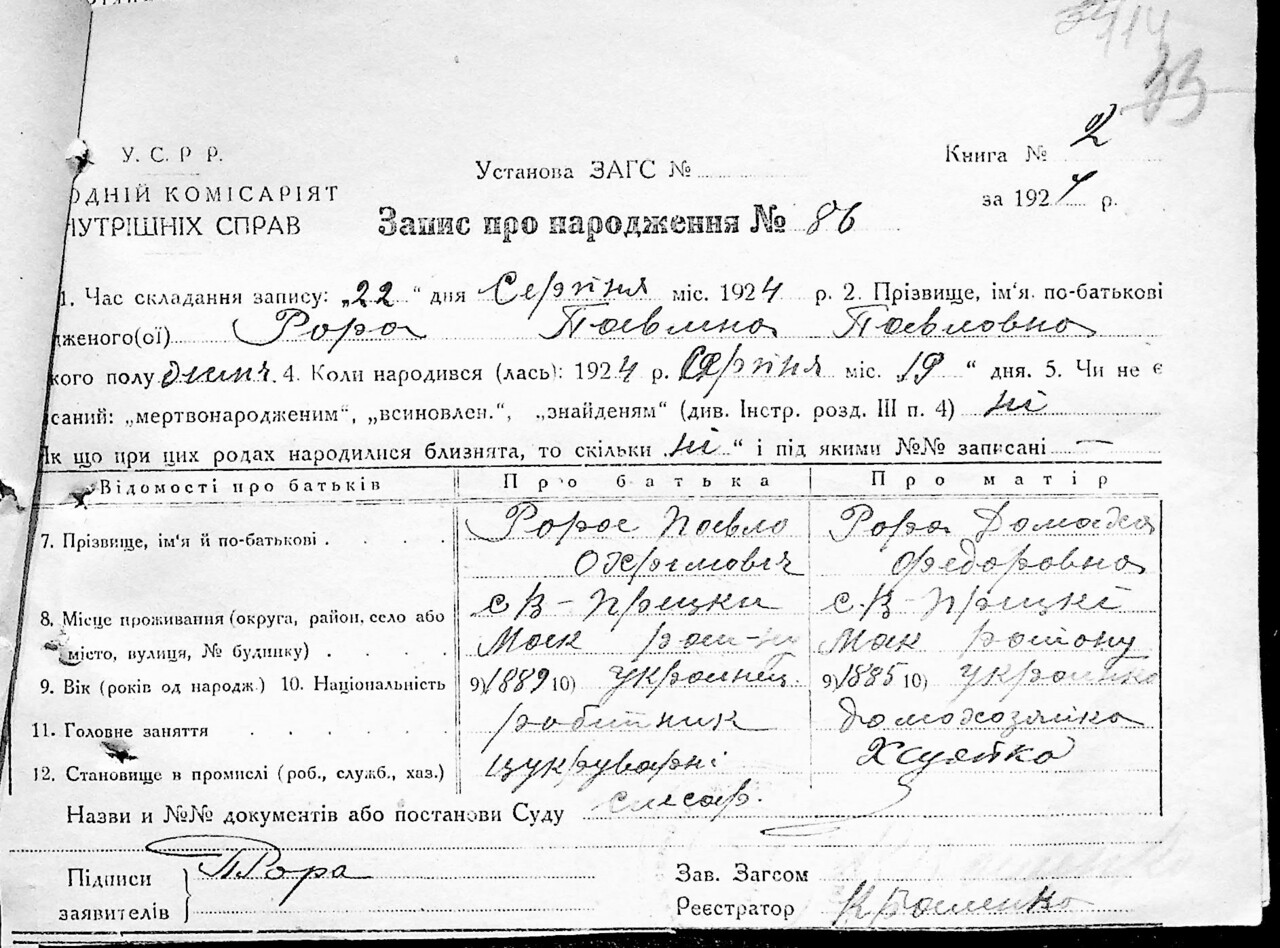 2414
33
У. С. Р Р.
ОДНІЙ КОМІСАРІЯТ
НУТРІШНІХ СПРАВ
Установа ЗАГС №
Книга № 2
за 1924 р.
Запис про народження № 86
1. Час складання запису: „22“ дня Серпня міс. 1924 р. 2. Прізвище, ім'я, по-батькові
дженого(ої) Рора Павлина Павловна
кого полу 4. Коли народився (лась): 1924 р. Серпня міс. „19“ дня. 5. Чи не є
саний: „мертвонародженим“, „всиновлен.“, „знайденям“ (див. Інстр. розд. III п. 4) ні
Як що при цих родах народилися близнята, то скільки „ні“ і під якими №№ записані —
Відомості про батьків Про батька Про матір
7. Прізвище, ім'я й по-батькові . . . . . Павло Рора
Федоровна
8. Місце проживання (округа, район, село або місто, вулиця, № будинку) . . . . с В-Прицки с. В-Прицкі
Мак рай-ну Мак району
9. Вік (років од народж.) 10. Національність 9) 1889 10) Українец. 9) 1885 10) Українка
11. Головне заняття . . . . . . робітник домохозяйка
12. Становище в промислі (роб., служб., хаз.) цукруварні
слесар.
Назви и №№ документів або постанови Суду
Підписи
заявителів
ПРора
Зав. Загсом
Реєстратор